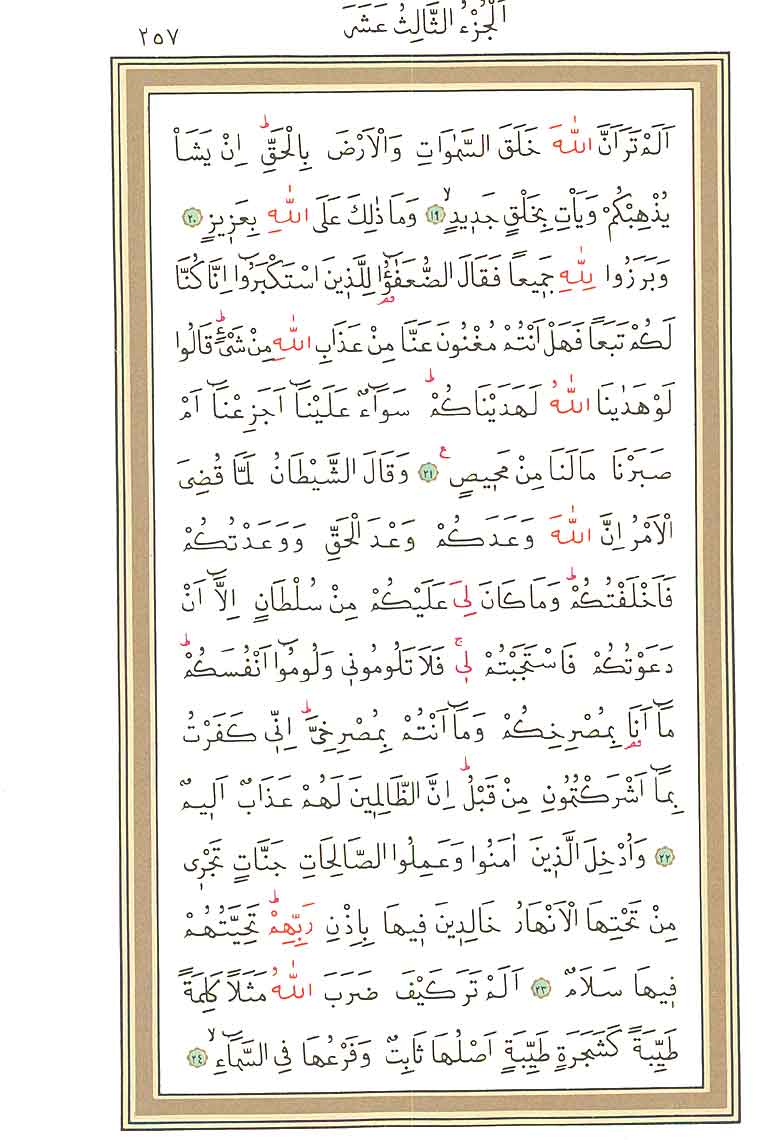 اَلْجُزْءُ الثَّالِثُ عَشَرَ
٢٥٧
اَلَمْ تَرَ اَنَّ اللّٰهَ خَلَقَ السَّمٰوَاتِ وَالْاَرْضَ بِالْحَقِّۜ اِنْ يَشَأْ
يُذْهِبْكُمْ وَيَأْتِ بِخَلْقٍ جَد۪يدٍۙ ﴿١٩﴾ وَمَا ذٰلِكَ عَلَى اللّٰهِ بِعَز۪يزٍ ﴿٢٠﴾
وَبَرَزُوا لِلّٰهِ جَم۪يعاً فَقَالَ الضُّعَفٰٓؤُ۬ا لِلَّذ۪ينَ اسْتَكْبَرُٓوا اِنَّا كُنَّا
لَكُمْ تَبَعاً فَهَلْ اَنْتُمْ مُغْنُونَ عَنَّا مِنْ عَذَابِ اللّٰهِ مِنْ شَيْءٍۜ قَالُوا
لَوْ هَدٰينَا اللّٰهُ لَهَدَيْنَاكُمْۜ سَوَٓاءٌ عَلَيْنَٓا اَجَزِعْنَٓا اَمْ
صَبَرْنَا مَا لَنَا مِنْ مَح۪يصٍ۟ ﴿٢١﴾ وَقَالَ الشَّيْطَانُ لَمَّا قُضِيَ
الْاَمْرُ اِنَّ اللّٰهَ وَعَدَكُمْ وَعْدَ الْحَقِّ وَوَعَدْتُكُمْ
فَاَخْلَفْتُكُمْۜ وَمَا كَانَ لِيَ عَلَيْكُمْ مِنْ سُلْطَانٍ اِلَّٓا اَنْ
دَعَوْتُكُمْ فَاسْتَجَبْتُمْ ل۪يۚ فَلَا تَلُومُون۪ي وَلُومُٓوا اَنْفُسَكُمْۜ
مَٓا اَنَا۬ بِمُصْرِخِكُمْ وَمَٓا اَنْتُمْ بِمُصْرِخِيَّۜ اِنّ۪ي كَفَرْتُ
بِمَٓا اَشْرَكْتُمُونِ مِنْ قَبْلُۜ اِنَّ الظَّالِم۪ينَ لَهُمْ عَذَابٌ اَل۪يمٌ
﴿٢٢﴾ وَاُدْخِلَ الَّذ۪ينَ اٰمَنُوا وَعَمِلُوا الصَّالِحَاتِ جَنَّاتٍ تَجْر۪ي
مِنْ تَحْتِهَا الْاَنْهَارُ خَالِد۪ينَ ف۪يهَا بِاِذْنِ رَبِّهِمْۜ تَحِيَّتُهُمْ
ف۪يهَا سَلَامٌ ﴿٢٣﴾ اَلَمْ تَرَ كَيْفَ ضَرَبَ اللّٰهُ مَثَلاً كَلِمَةً
طَيِّبَةً كَشَجَرَةٍ طَيِّبَةٍ اَصْلُهَا ثَابِتٌ وَفَرْعُهَا فِي السَّمَٓاءِۙ ﴿٢٤﴾